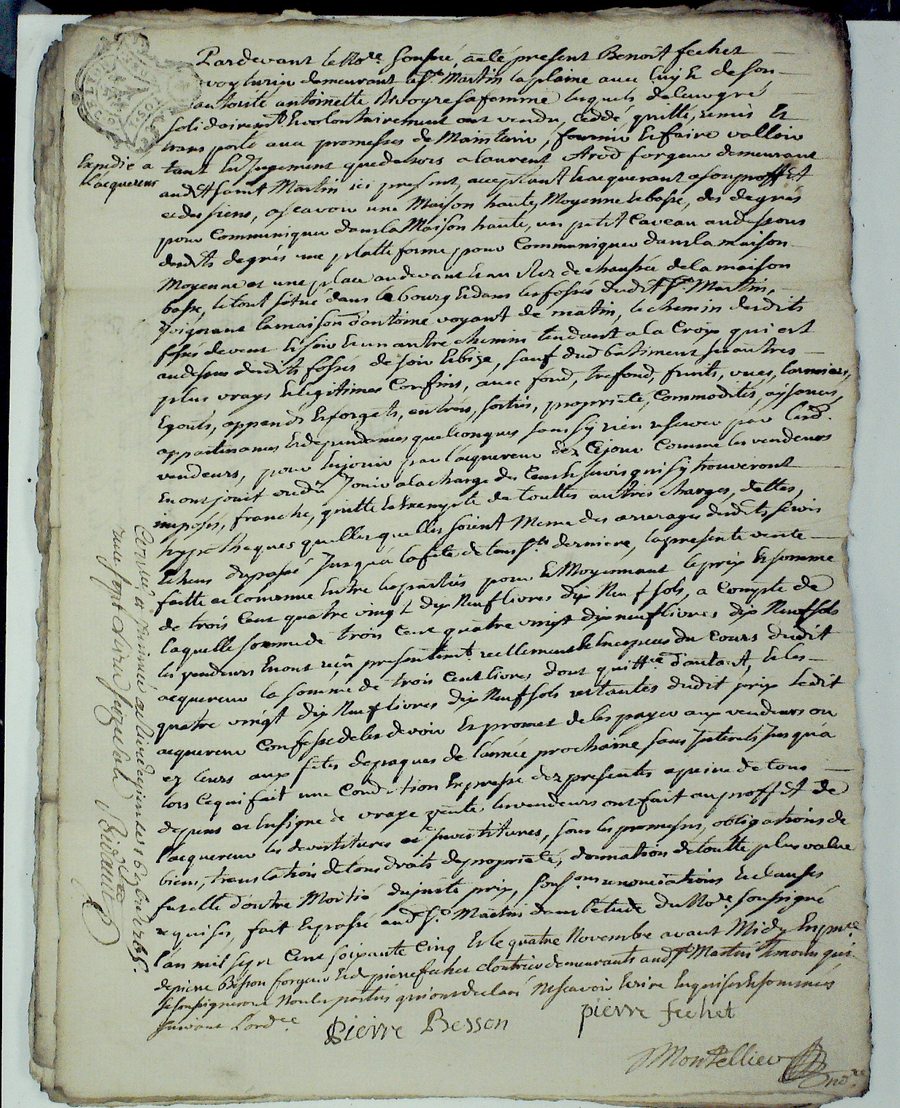 Pardevant le Nore. soussigné, a été présent Benoit fechet
voyturier demeurant a St. Martin la plaine avec luy & de son
autorité antoinette Bidoyre sa femme lesquels de leur gré
solidairemt. & volontairement ont vendu, cedé, quitté, remis et
transporté aux promesses de Maintenir, fournir & faire valloir
tant En Jugement que dehors a laurent Arod forgeur demeurant
audt. saint Martin ici present, acceptant & acquerant a son proffit
et des siens, asçavoir une Maison haute, Moyenne & basse, des degrés
pour Communiquer dans la Maison haute, un petit Caveau audessous
desdits degrés une platte forme pour Communiquer dans la maison
Moyenne et une place audevant & au Rez de chaussée de la maison
basse, le tout situé dans le bourg & dans les fossés dudit St. Martin,
Joignant la maison d'antoine voyant de matin, le chemin desdits
fossés de vent & soir & un autre chemin tendant a la Croix qui est
audessus desdits fossés de soir & bize, sauf dudt. batiment ses autres
plus vrays & légitimes Confins, avec fond, trefond, fruits, vues, larmiers,
Egouts, appends & forgets, entrées, sorties, proprieté, Commodités, aysances,
appartenances & dependances quelconques sans s'y rien reserver par lesd.
vendeurs, pour En jouir par l'acquereur dez Cejour Comme les vendeurs
En ont jouit ou dû Jouir a la charge des Cens & servis qui s'y trouveront
imposés, franche, quitte & exempte de touttes autres Charges, dettes,
hypotheques quelles quelles soient Meme des arrerages desdits servis
& Cens du passé Jusqu'a la fete de tous Sts. derniere, la presente vente
faitte et Convenue Entre les parties pour & Moyennant le prix & somme
de trois Cent quatre vingt dix Neuf livres dix Neuf sols, a Compte de
laquelle somme de trois Cent quatre vingt dix neuf livres dix Neuf sols
les vendeurs En ont reçu presentemt. réellement & En especes du Cours dudit
acquereur la somme de trois Cent livres dont quittce. d'autant, & les
quatre vingt dix Neuf livres dix Neuf sols restantes dudit prix ledit
acquereur Confesse de les devoir & promet de les payer aux vendeurs ou
ez leurs aux fetes de paques de l'année prochaine sans Interets Jusqu'a
lors Ce qui fait une Condition Expresse dez presentes a peine de tous
depens et En signe de vraye vente les vendeurs ont fait au proffit de
l'acquereur les devestitures et Investitures, sous les promesses, obligations de
biens, translation de tous droits de proprieté, donnation de toutte plus value
fut elle d'outre Moitié du juste prix, soums.ons renonciations & clauses
requises, fait & passé audt. St. Martin dans l'etude du Nore. soussigné
l'an mil sept Cent soixante Cinq & le quatre Novembre avant Midy En pnce.
de pierre Besson forgeur & de pierre fechet cloutrier demeurants audt. St. Martin temoins qui
se soussigneront Non les parties qui ont declaré Ne sçavoir Ecrire Enquises & sommées
suivant l'ordce.
pierre Besson
pierre fechet
Montellier nore.
Expedié a
l'acquereur